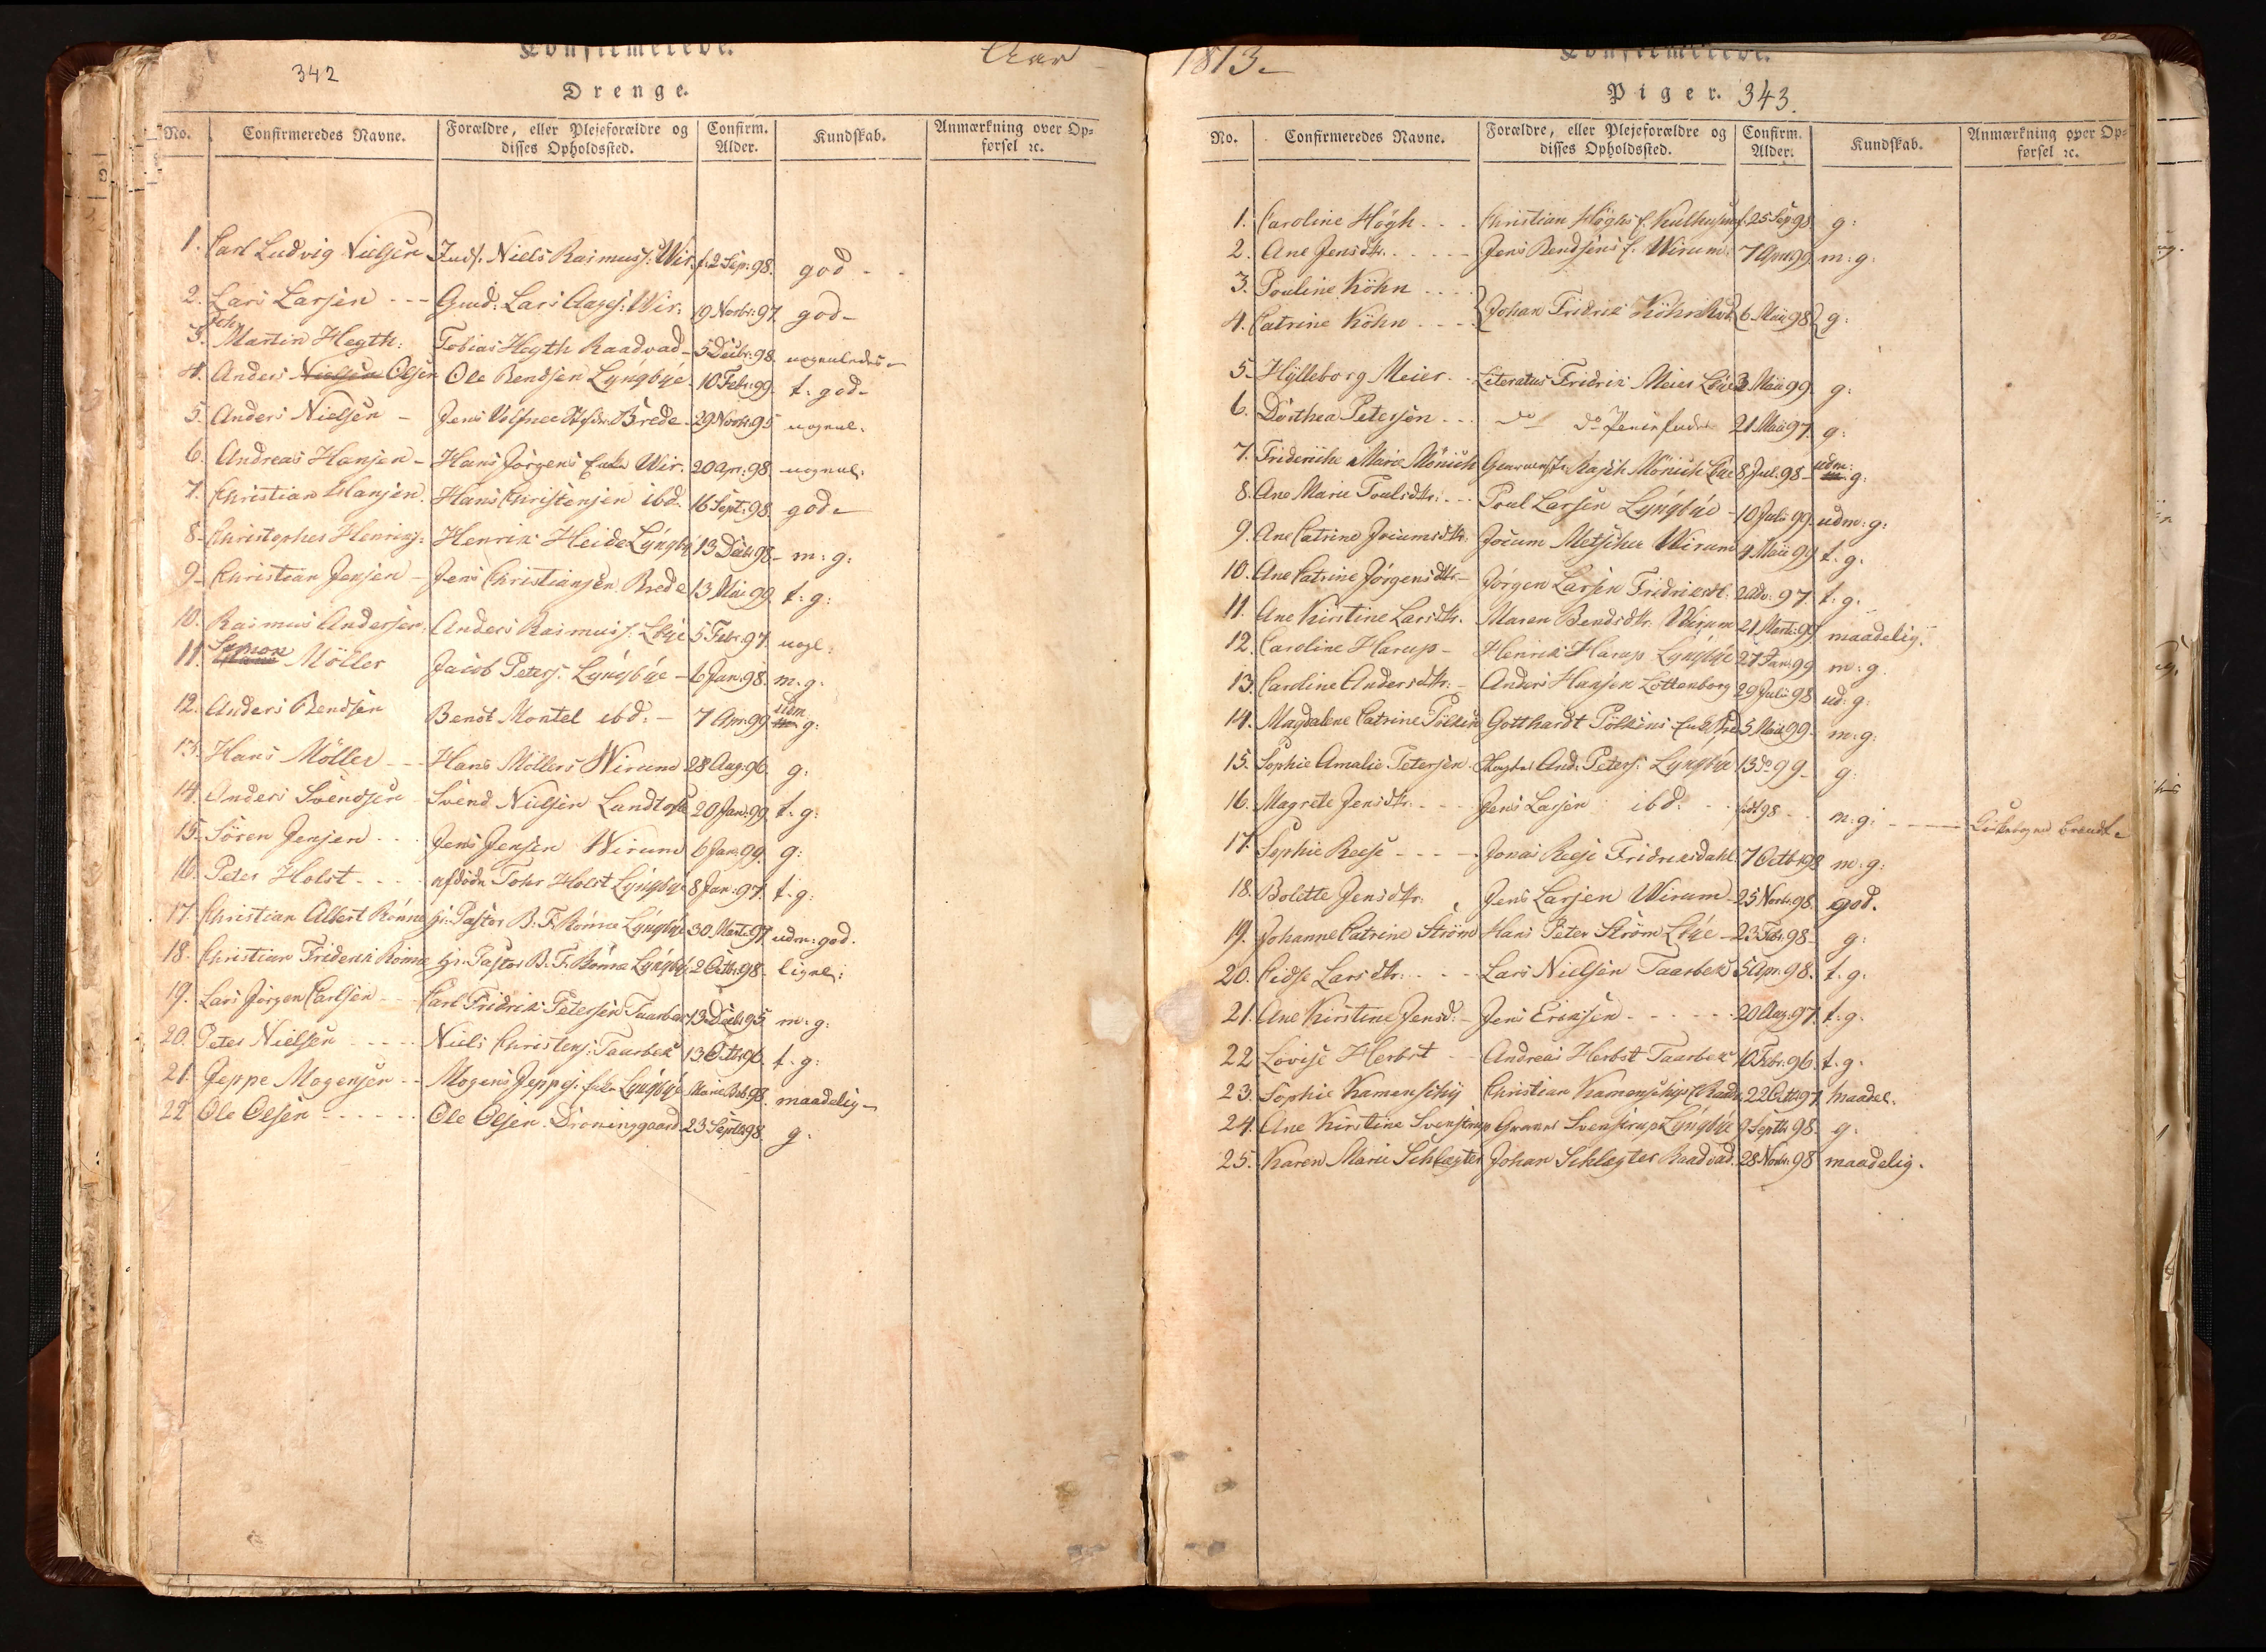 342
Confirmerede.
Aar
Drenge.
No. Confirmeredes Navne. Forældre, eller Plejeforældre og disses Opholdssted. Confirm. Alder. Kundskab. Anmærkning over Opførsel ꝛc.
1. Carl Ludvig Nielsen Inds. Niels Rasmuss: Wir. f. 2 Sep: 98. god - -
2. Lars Larsen - - - Gmd: Lars Aages: Wir: 19 Novbr: 97. god -
3. Joh Martin Hegth: Tobias Hegth Raadvad - 5 Decbr: 98. nogenledes -
4. Anders Nielsen Olsen Ole Bendsen Lyngbÿe - 10 Febr: 99. t: god -
5. Anders Nielsen - Jens Brede - 29 Novbr: 95 nogenl:
6. Andreas Hansen - Hans Jørgens Enke Wir. 20 Apr: 98. nogenl:
7. Christian Hansen. Hans Christensen ibd. 16 Sept: 98. god -
8 - Christopher Henrics: Henrik Heide Lyngby 13 Decbr 98 - m: g:
9 - Christian Jensen - Jens Christiansen Brede 13 Mai 99. t: g:
10. Rasmus Andersen: Anders Rasmuss. Lbÿe 5 Febr: 97. nogl:
11. Simon Möller Jacob Peters: Lyngbÿe - 6 Jan: 98. m: g:
12. Anders Bendsen Bendt Montel ibd: - 7 Apr: 99. udm g:
13. Hans Möller - - Hans Möllers Wirum 28 Aug: 96. g:
14. Anders Svendsen Svend Nielsen Landtofte 20 Jan: 99. t: g:
15. Søren Jensen - - - Jens Jensen Wirum 6 Jan: 99. g:
16. Peter Holst - - - afdöde Tohr Holst Lyngbÿe 8 Jan: 97. t: g:
17. Christian Albert Rönne Hr. Pastor B. F. Rönne Lyngbÿe 30 Marts: 97. udm: god.
18. Christian Friderik Rönne Hr. Pastor B. F. Rönne Lyngbÿe 2 Octb: 98 - ligel:
19. Lars Jörgen Carlsen - - Carl Fridrik Petersen Taarbek 13 Decbr 95 m: g:
20. Peter Nielsen - - - - Niels Christens: Taarbek 13 Octbr 96. t: g:
21. Jeppe Mogensen - - Mogens Jeppes: Enke Lyngbÿe 98. maadelig -
22 Ole Olsen - - - - - - Ole Olsen. Droninggaard 23 Septbr 98. g:
1813 -
Confirmerede.
Piger. 343.
No. Confirmeredes Navne. Forældre, eller Plejeforældre og disses Opholdssted. Confirm. Alder. Kundskab. Anmærkning over Opførsel ꝛc.
1. Caroline Högh - - - Christian Höghs f. 25 Sep 98 g:
2. Ane Jensdtr. - - - - Jens Bendsens f. Wirum 7 April 99. m: g:
3. Pouline Köhn - - - -
4. Catrine Köhn - - - - Johan Fridrik Köhn 6 Maii 98 g:
5 - Hylleborg Meier - - Literatus Fridrik Meier Lbÿe 3 Maii 99. g:
6. Dorthea Petersen - - - do do 21 Maii 97. g:
7. Friderikke Marie Mönich Mönich Lbÿe 8 Jul. 98 - udm: g:
8. Ane Marie Poulsdtr: - - - Poul Larsen Lyngbÿe - 10 Juli 99 - udm: g:
9. Ane Catrine Jocumsdtr. Jocum Metscher Wirum 9 Maii 99 t. g.
10. Ane Catrine Jörgensdtr. - Jörgen Larsen Fridriksdl. 97. t: g:
11. Ane Kirstine Larsdtr. Maren Bendsdtr. Wirum 21 Marts: 99 maadelig.
12. Caroline Harup - Henrik Harup Lyngbÿe 27 Jan: 99 m: g.
13. Caroline Andersdtr: - Anders Hansen Lottenborg 29 Julii 98 ud: g:
14. Magdalene Catrine Pölkin Gotthardt Pölkins 5 Maii 99 - m: g:
15. Sophie Amalie Petersen - And: Peters: Lyngbÿe 13 do 99 - g:
16. Magrete Jensdtr. - - - Jens Larsen ibd: - - födt 98 - - m: g: - - - - brændt -
17. Sophie Reese - - - - Jonas Reese Fridriksdahl 7 Octb 98 m: g:
18. Bolette Jensdtr. Jens Larsen Wirum - 25 Novbr: 98. god.
19. Johanne Catrine Ström Hans Peter Ström Lbÿe - 23 Febr: 98 - g:
20. Cidse Larsdtr: - - - Lars Nielsen Taarbek 5 Apr: 98. t. g:
21. Ane Kirstine Jensd: - Jens Eriksen - - - - - - 20 Aug: 97. t. g.
22 Lovise Herbst - - - Andreas Herbst Taarbek 10 Febr: 96. t: g:
23. Sophie Kamenschÿ Christian Kamenschÿs Raadv. 22 Octb 97. maadel.
24. Ane Kirstine Svenstrup Svenstrup Lyngbÿe 9 Septbr 98. g.
25. Karen Marie Schlegter Johan Schlegter Raadvad. 28 Novbr: 98 maadelig.